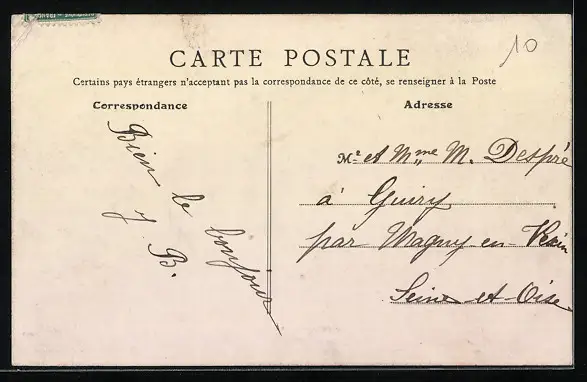 10
CARTE POSTALE
Certains pays étrangers n'acceptant pas la correspondance de ce côté, se renseigner à la Poste
Correspondance
Adresse
Bien le bonjour
J B.
Mr et Mme M. Despré
à Guiry
par Magny-en-Vexin
Seine-et-Oise